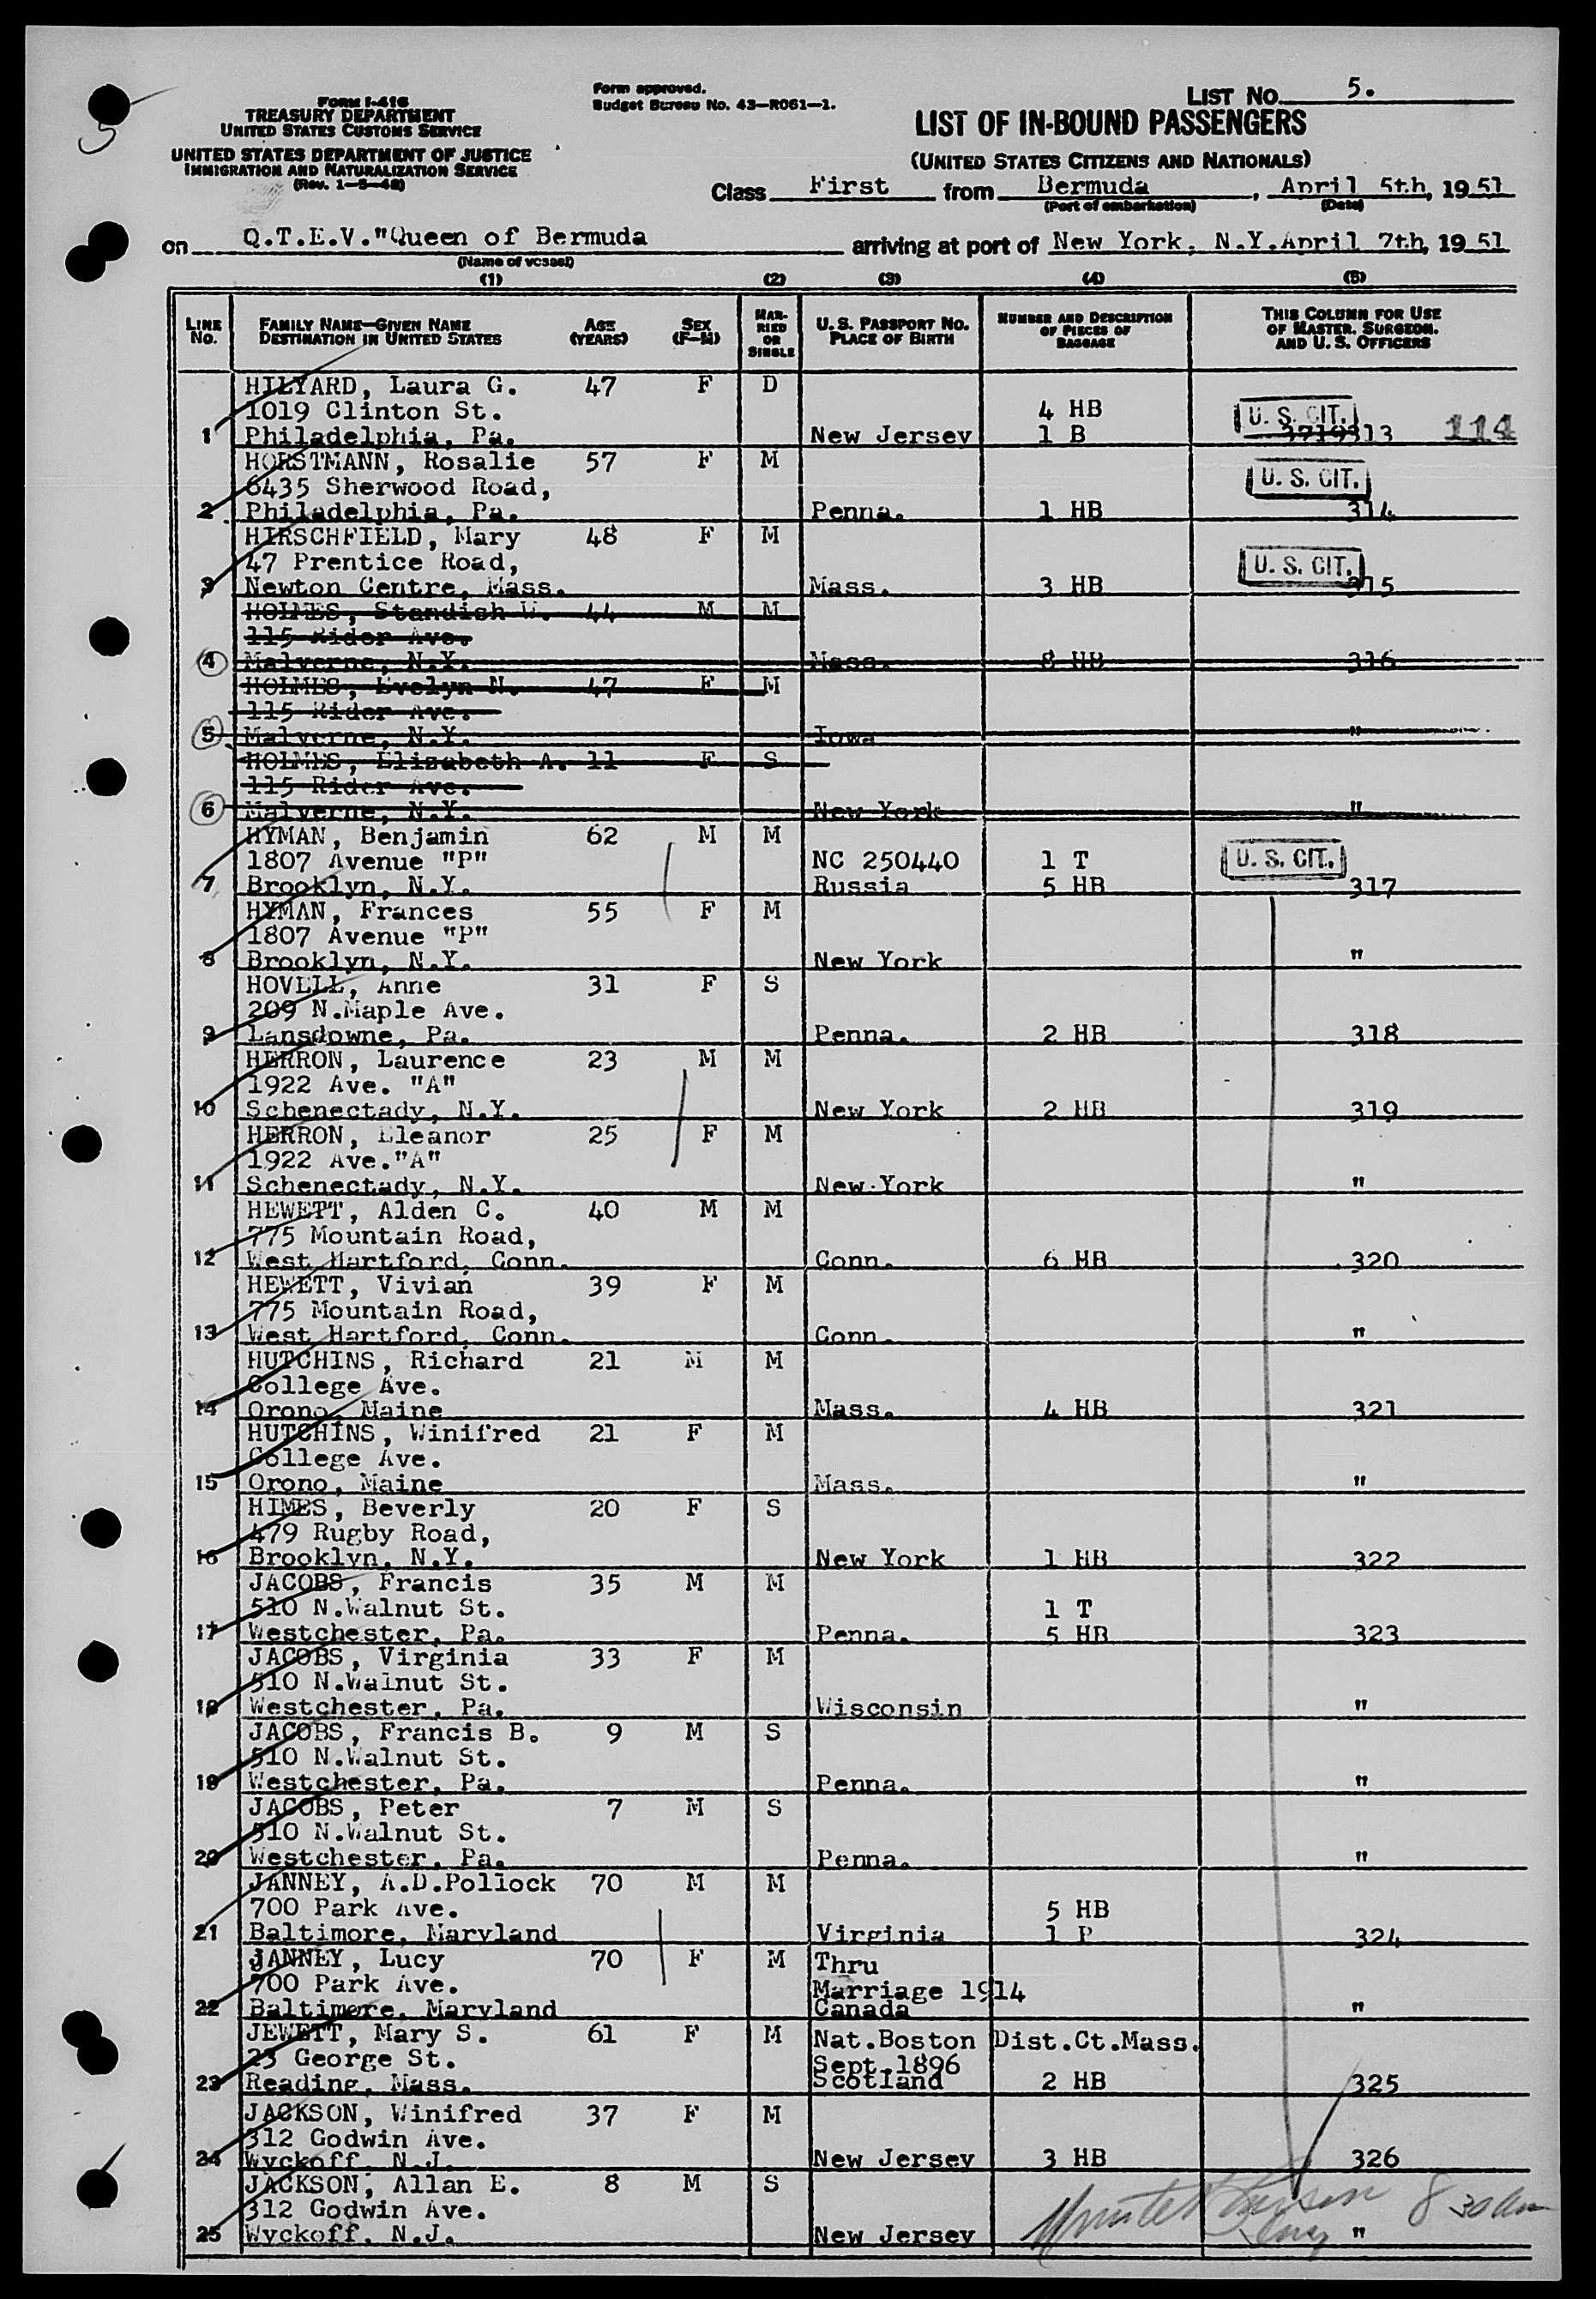 5
FORM I-416
TREASURY DEPARTMENT
UNITED STATES CUSTOMS SERVICE
UNITED STATES DEPARTMENT OF JUSTICE
IMMIGRATION AND NATURALIZATION SERVICE
(Rev. 1-5-48)
Form approved.
Budget Bureau No. 43-R061-1.
LIST NO. 5.
LIST OF IN-BOUND PASSENGERS
(UNITED STATES CITIZENS AND NATIONALS)
Class First from Bermuda, April 5th, 1951
(Port of embarkation) (Date)
on Q.T.E.V."Queen of Bermuda arriving at port of New York, N.Y. April 7th, 1951
(Name of vessel)
(1) (2) (3) (4) (5)
LINE NO. FAMILY NAME—GIVEN NAME DESTINATION IN UNITED STATES AGE (YEARS) SEX (F-M) MARRIED OR SINGLE U. S. PASSPORT NO. PLACE OF BIRTH NUMBER AND DESCRIPTION OF PIECES OF BAGGAGE THIS COLUMN FOR USE OF MASTER, SURGEON, AND U. S. OFFICERS
HILYARD, Laura G. 47 F D
1019 Clinton St. 4 HB U. S. CIT.
1 Philadelphia, Pa. New Jersey 1 B 3719313 114
HORSTMANN, Rosalie 57 F M
6435 Sherwood Road, U. S. CIT.
2 Philadelphia, Pa. Penna. 1 HB 314
HIRSCHFIELD, Mary 48 F M
47 Prentice Road, U. S. CIT.
3 Newton Centre, Mass. Mass. 3 HB 315
HOLMES, Standish W. 44 M M
115 Rider Ave.
4 Malverne, N.Y. Mass. 8 HB 316
HOLMES, Evelyn N. 47 F M
115 Rider Ave.
5 Malverne, N.Y. Iowa "
HOLMES, Elizabeth A. 11 F S
115 Rider Ave.
6 Malverne, N.Y. New York "
HYMAN, Benjamin 62 M M
1807 Avenue "P" NC 250440 1 T U. S. CIT.
7 Brooklyn, N.Y. Russia 5 HB 317
HYMAN, Frances 55 F M
1807 Avenue "P"
8 Brooklyn, N.Y. New York "
HOVELL, Anne 31 F S
209 N.Maple Ave.
9 Lansdowne, Pa. Penna. 2 HB 318
HERRON, Laurence 23 M M
1922 Ave. "A"
10 Schenectady, N.Y. New York 2 HB 319
HERRON, Eleanor 25 F M
1922 Ave."A"
11 Schenectady, N.Y. New York "
HEWETT, Alden C. 40 M M
775 Mountain Road,
12 West Hartford, Conn. Conn. 6 HB 320
HEWETT, Vivian 39 F M
775 Mountain Road,
13 West Hartford, Conn. Conn. "
HUTCHINS, Richard 21 M M
College Ave.
14 Orono, Maine Mass. 4 HB 321
HUTCHINS, Winifred 21 F M
College Ave.
15 Orono, Maine Mass. "
HIMES, Beverly 20 F S
479 Rugby Road,
16 Brooklyn, N.Y. New York 1 HB 322
JACOBS, Francis 35 M M
510 N.Walnut St. 1 T
17 Westchester, Pa. Penna. 5 HB 323
JACOBS, Virginia 33 F M
510 N.Walnut St.
18 Westchester, Pa. Wisconsin "
JACOBS, Francis B. 9 M S
510 N.Walnut St.
19 Westchester, Pa. Penna. "
JACOBS, Peter 7 M S
510 N.Walnut St.
20 Westchester, Pa. Penna. "
JANNEY, A.D.Pollock 70 M M
700 Park Ave. 5 HB
21 Baltimore, Maryland Virginia 1 P 324
JANNEY, Lucy 70 F M Thru
700 Park Ave. Marriage 1914
22 Baltimore, Maryland Canada "
JEWETT, Mary S. 61 F M Nat.Boston Dist.Ct.Mass.
23 George St. Sept.1896
23 Reading, Mass. Scotland 2 HB 325
JACKSON, Winifred 37 F M
312 Godwin Ave.
24 Wyckoff, N.J. New Jersey 3 HB 326
JACKSON, Allan E. 8 M S
312 Godwin Ave. 8 30 am
25 Wyckoff, N.J. New Jersey "